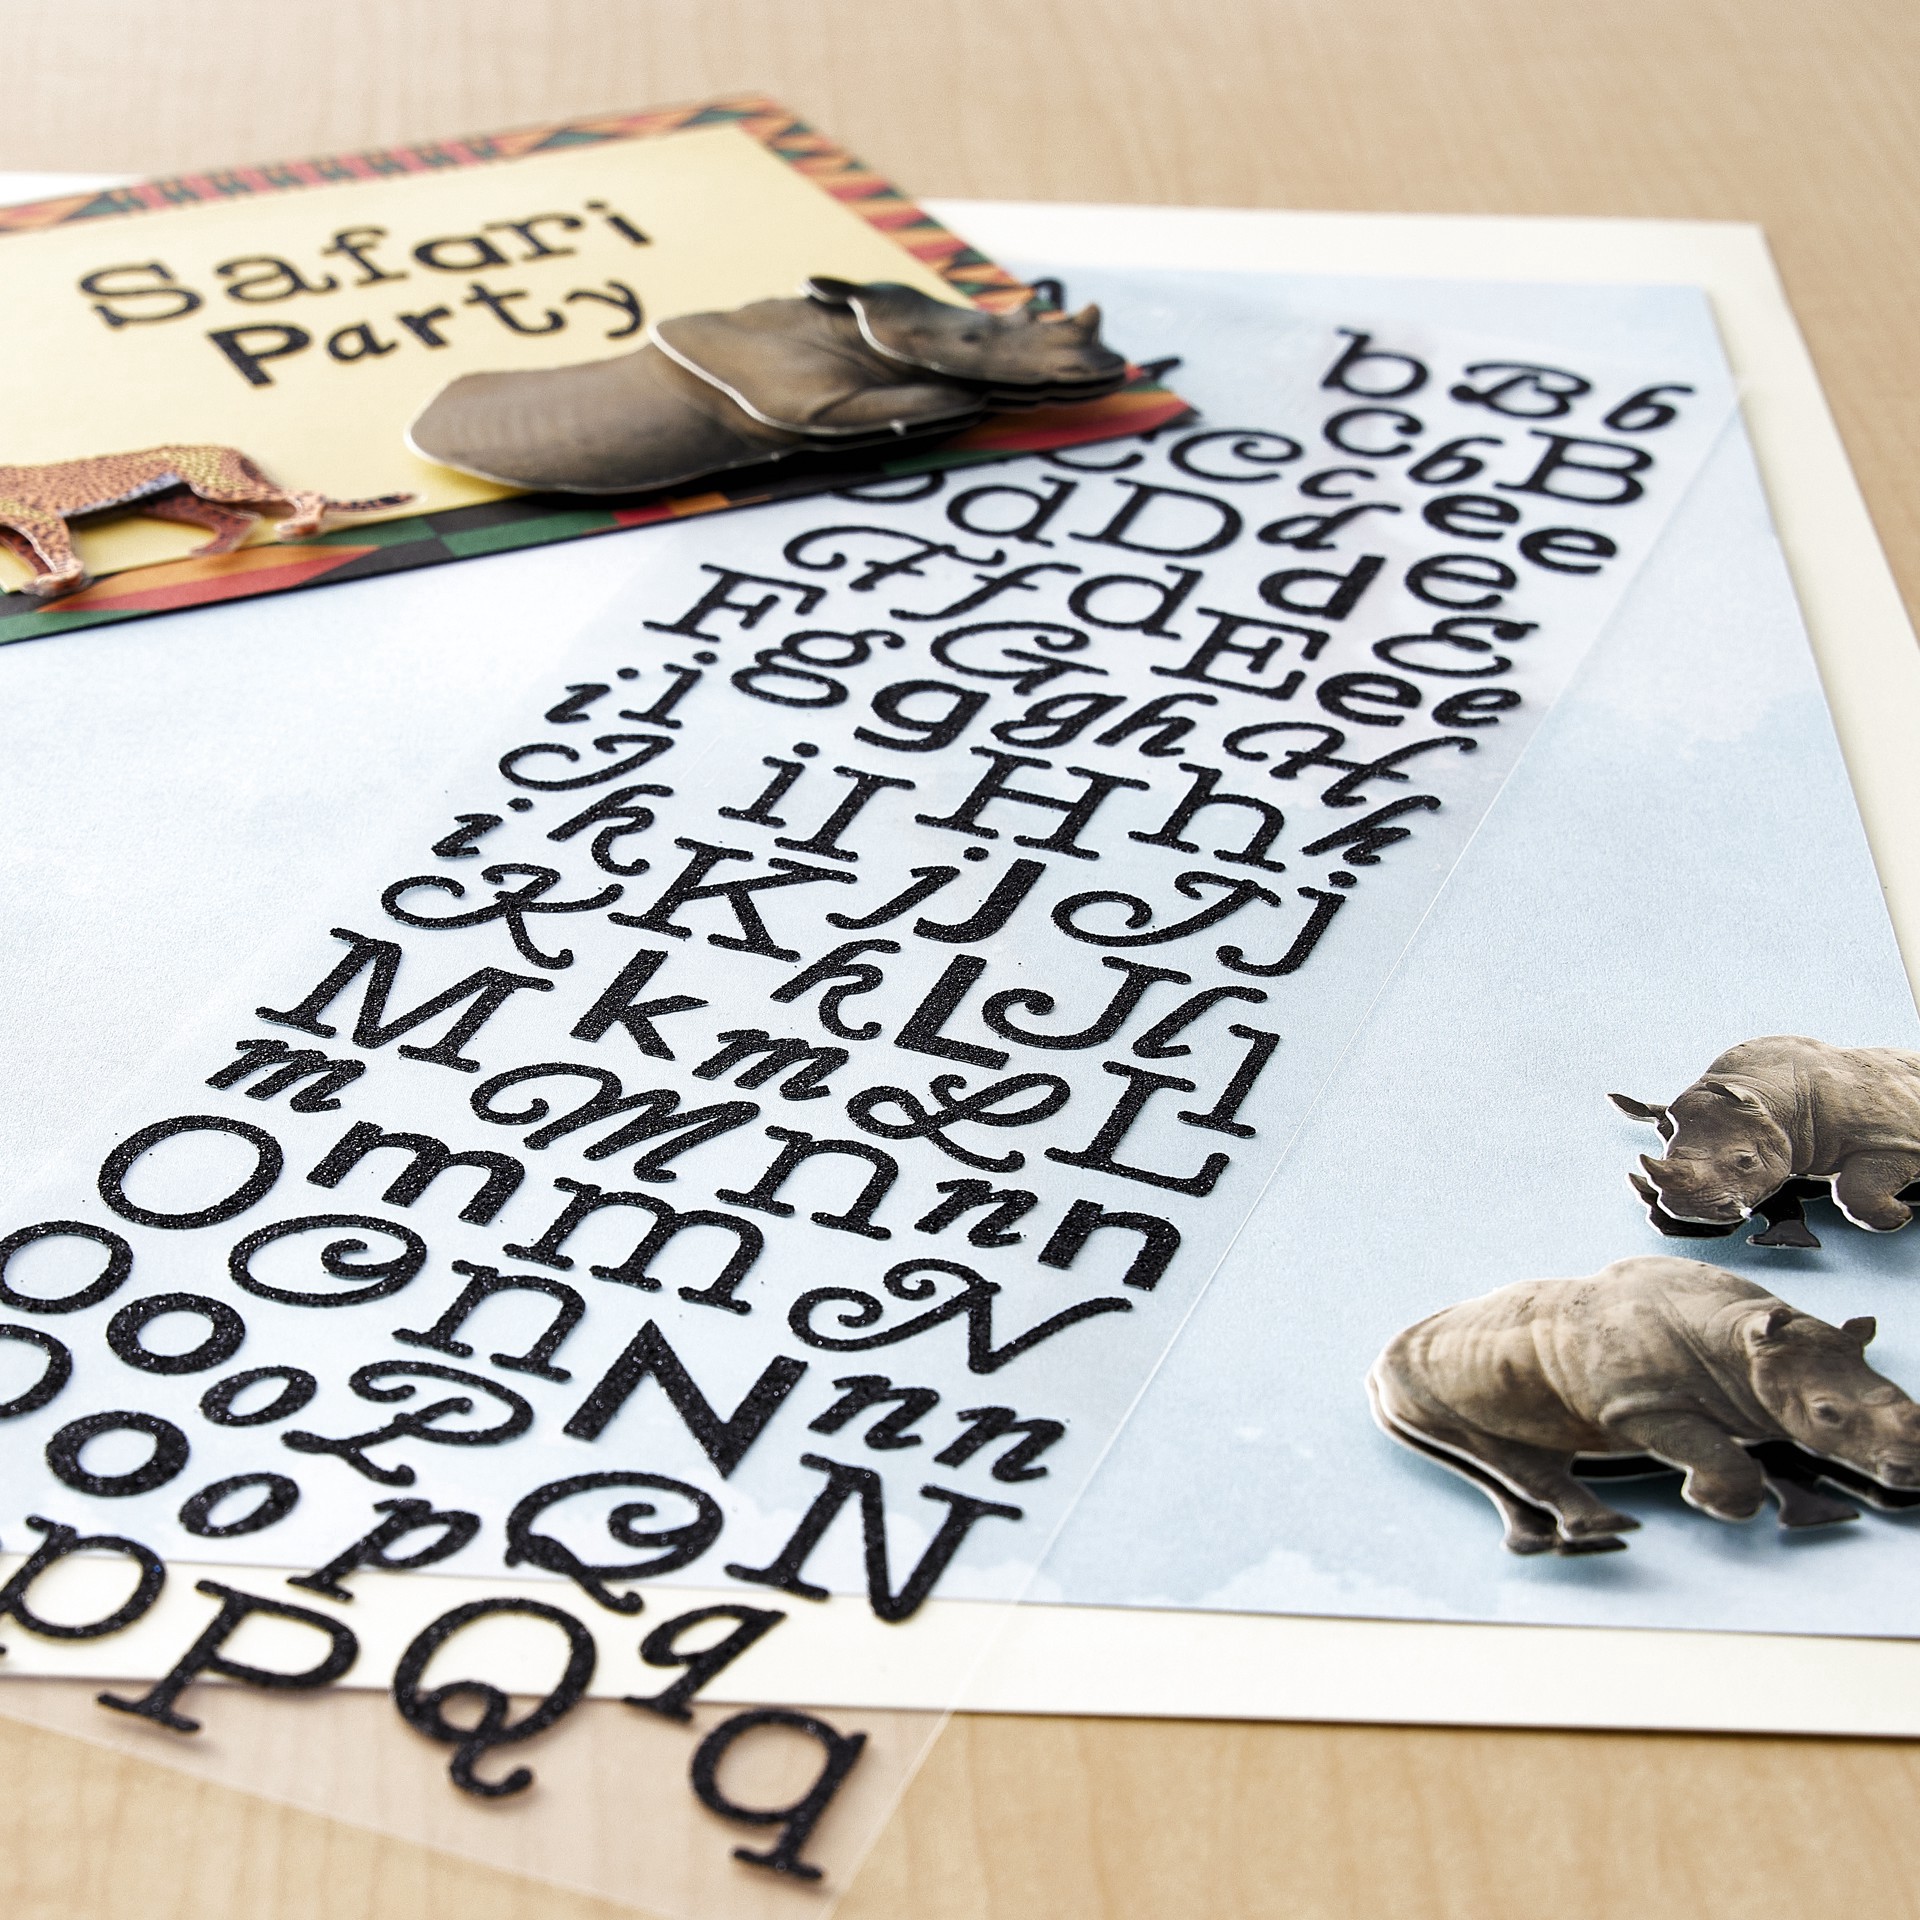 Safari
Party
b B b
c b B
C c e e
d D d e
F f d E d E
F g G e e
i i g g h H
J i I H h h
i k K j J J j
K k k L J l l
M m L L
m M n n n
O m m N
o O n N n n
o o P N
o o p Q q
p P Q q